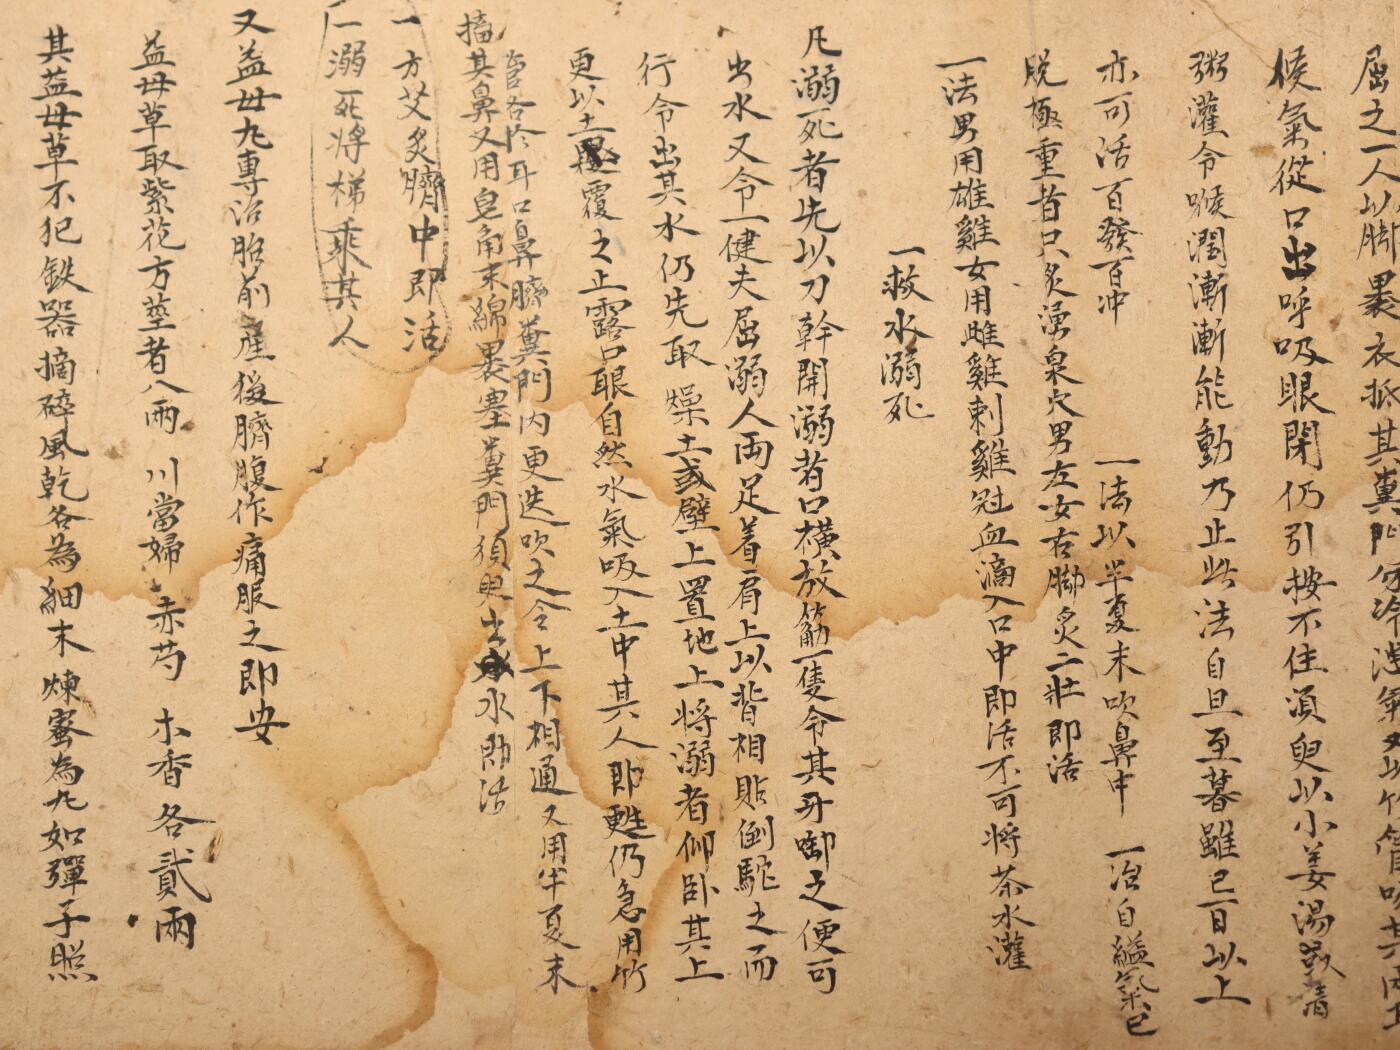 屈之一人以脚裹衣抵其糞門勿令泄氣又以竹管吹其兩耳
候氣從口出呼吸眼開仍引按不住須臾以小姜湯或清
粥灌令喉潤漸漸能動乃止此法自旦至暮雖已冐以上
亦可活百發百冲 一法以半夏末吹鼻中 一治自縊氣已
脱極重者只灸湧泉穴男左女右脚灸二壯即活
一法男用雄雞女用雌雞刺雞冠血滴入口中即活不可將茶水灌
一救水溺死
凡溺死者先以刀斡開溺者口橫放筯一隻令其牙啣之便可
出水又令一健夫屈溺人両足着肩上以背相貼倒駝之而
行令出其水仍先取燥土或壁上置地上將溺者仰卧其上
更以土覆之止露口眼自然水氣吸入土中其人即甦仍急用竹
管各於耳口鼻臍糞門内更迭吹之令上下相通又用半夏末
搐其鼻又用皂角末綿裹塞糞門須臾出水即活
一方艾灸臍中即活
一溺死將梯乘其人
又益毋丸專治胎前產後臍腹作痛服之即安
益毋草取紫花方莖者八兩 川當婦 赤芍 木香各貳兩
其益毋草不犯鉄器摘碎風乾各為細末 煉蜜為丸如彈子照